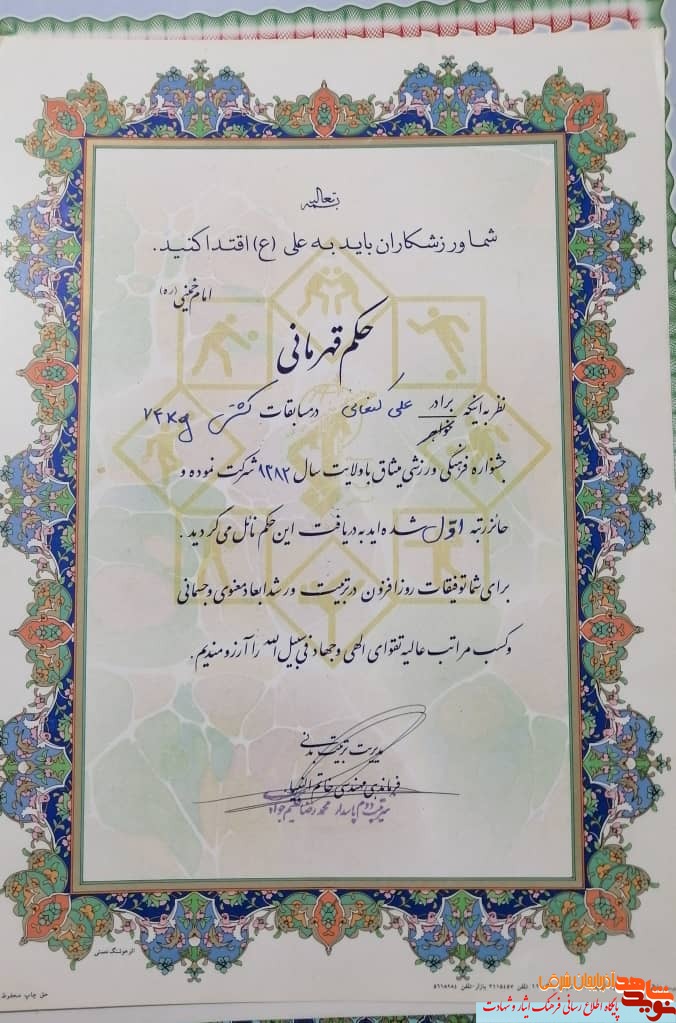 بسمه تعالی
شما ورزشکاران باید به علی (ع) اقتدا کنید.
امام خمینی (ره)
حکم قهرمانی
نظر به اینکه برادر علی کنعانی در مسابقات کشتی ۷۴ Kg
خواهر
جشنواره فرهنگی ورزشی میثاق با ولایت سال ۱۳۸۲ شرکت نموده و
حائز رتبه اوّل شده اید به دریافت این حکم نائل می گردید .
برای شما توفیقات روزافزون در تربیت و رشد ابعاد معنوی و جسمانی
و کسب مراتب عالیه تقوای الهی و جهاد فی سبیل الله را آرزومندیم .
مدیریت تربیت بدنی
فرماندهی مهندسی خاتم الانبیاء
سرتیپ دوم پاسدار محمد رضا
حق چاپ محفوظ
تلفن ۳۱۱۵۴۵۲ بازار-تلفن ۵۶۱۸۹۸۴
نوید شاهد آذربایجان شرقی
پایگاه اطلاع رسانی فرهنگ ایثار و شهادت